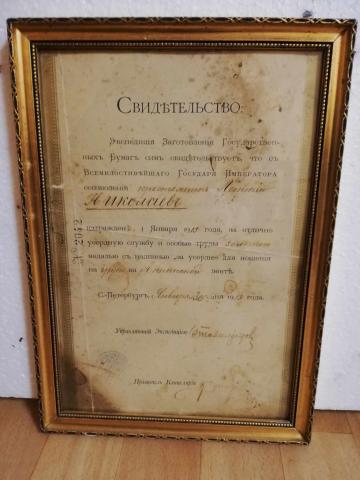 Свидѣтельство.
Экспедиція Заготовленія Государствен-
ныхъ Бумагъ симъ свидѣтельствуетъ, что съ
Всемилостивѣйшаго Государя Императора
соизволенія
Николаевъ
награжденъ 1 Января 19 года, за отлично
усердную службу и особые труды золотою
медалью съ надписью „за усердіе“ для ношенія
на груди на Аннинской лентѣ.
С.-Петербургъ, Января дня 191 года.
Управляющій Экспедиціею
Правитель Канцеляріи
№ 2042